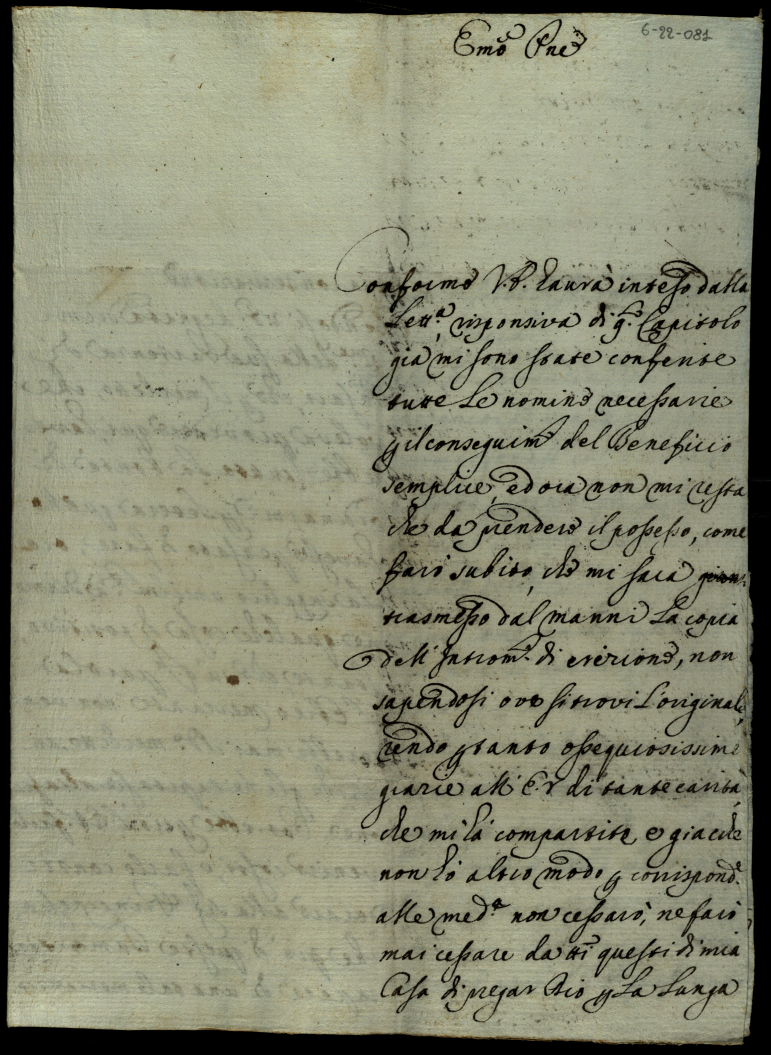 6-22-081
Emo Pne
Conforme V. E. haurà inteso dalla
Lett.a risponsiva di q.o Capitolo
già mi sono state conferite
tutte le nomine necessarie
p il conseguim.to del Beneficio
semplice, ed ora non mi resta
che da prendere il possesso, come
farò subito, che mi sarà
trasmesso dal Manni la copia
dell' Instrom.to di erezione, non
sapendosi ove si trovi l'originale,
rendo p tanto ossequiosissime
grazie all' E. V. di tante carità,
che mi hà compartite, e giache
non hò altro modo p corrispond.e
alle med.e non cessarò, ne farò
mai cessare da tti questi di mia
Casa di pregar Dio p la lunga